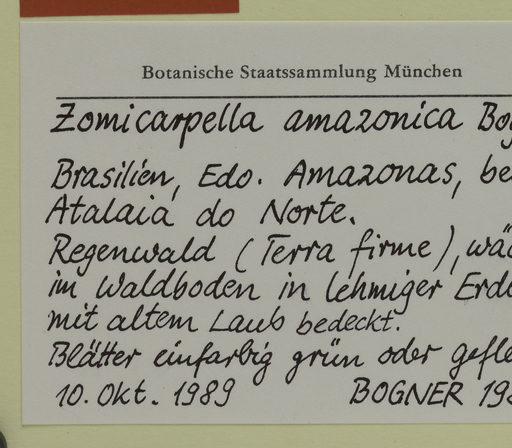 Botanische Staatssammlung München
Zomicarpella amazonica Bog
Brasilien, Edo. Amazonas, be
Atalaia do Norte.
Regenwald (Terra firme), wäc
im Waldboden in lehmiger Erde
mit altem Laub bedeckt.
Blätter einfarbig grün oder gefle
10. Okt. 1989 BOGNER 198